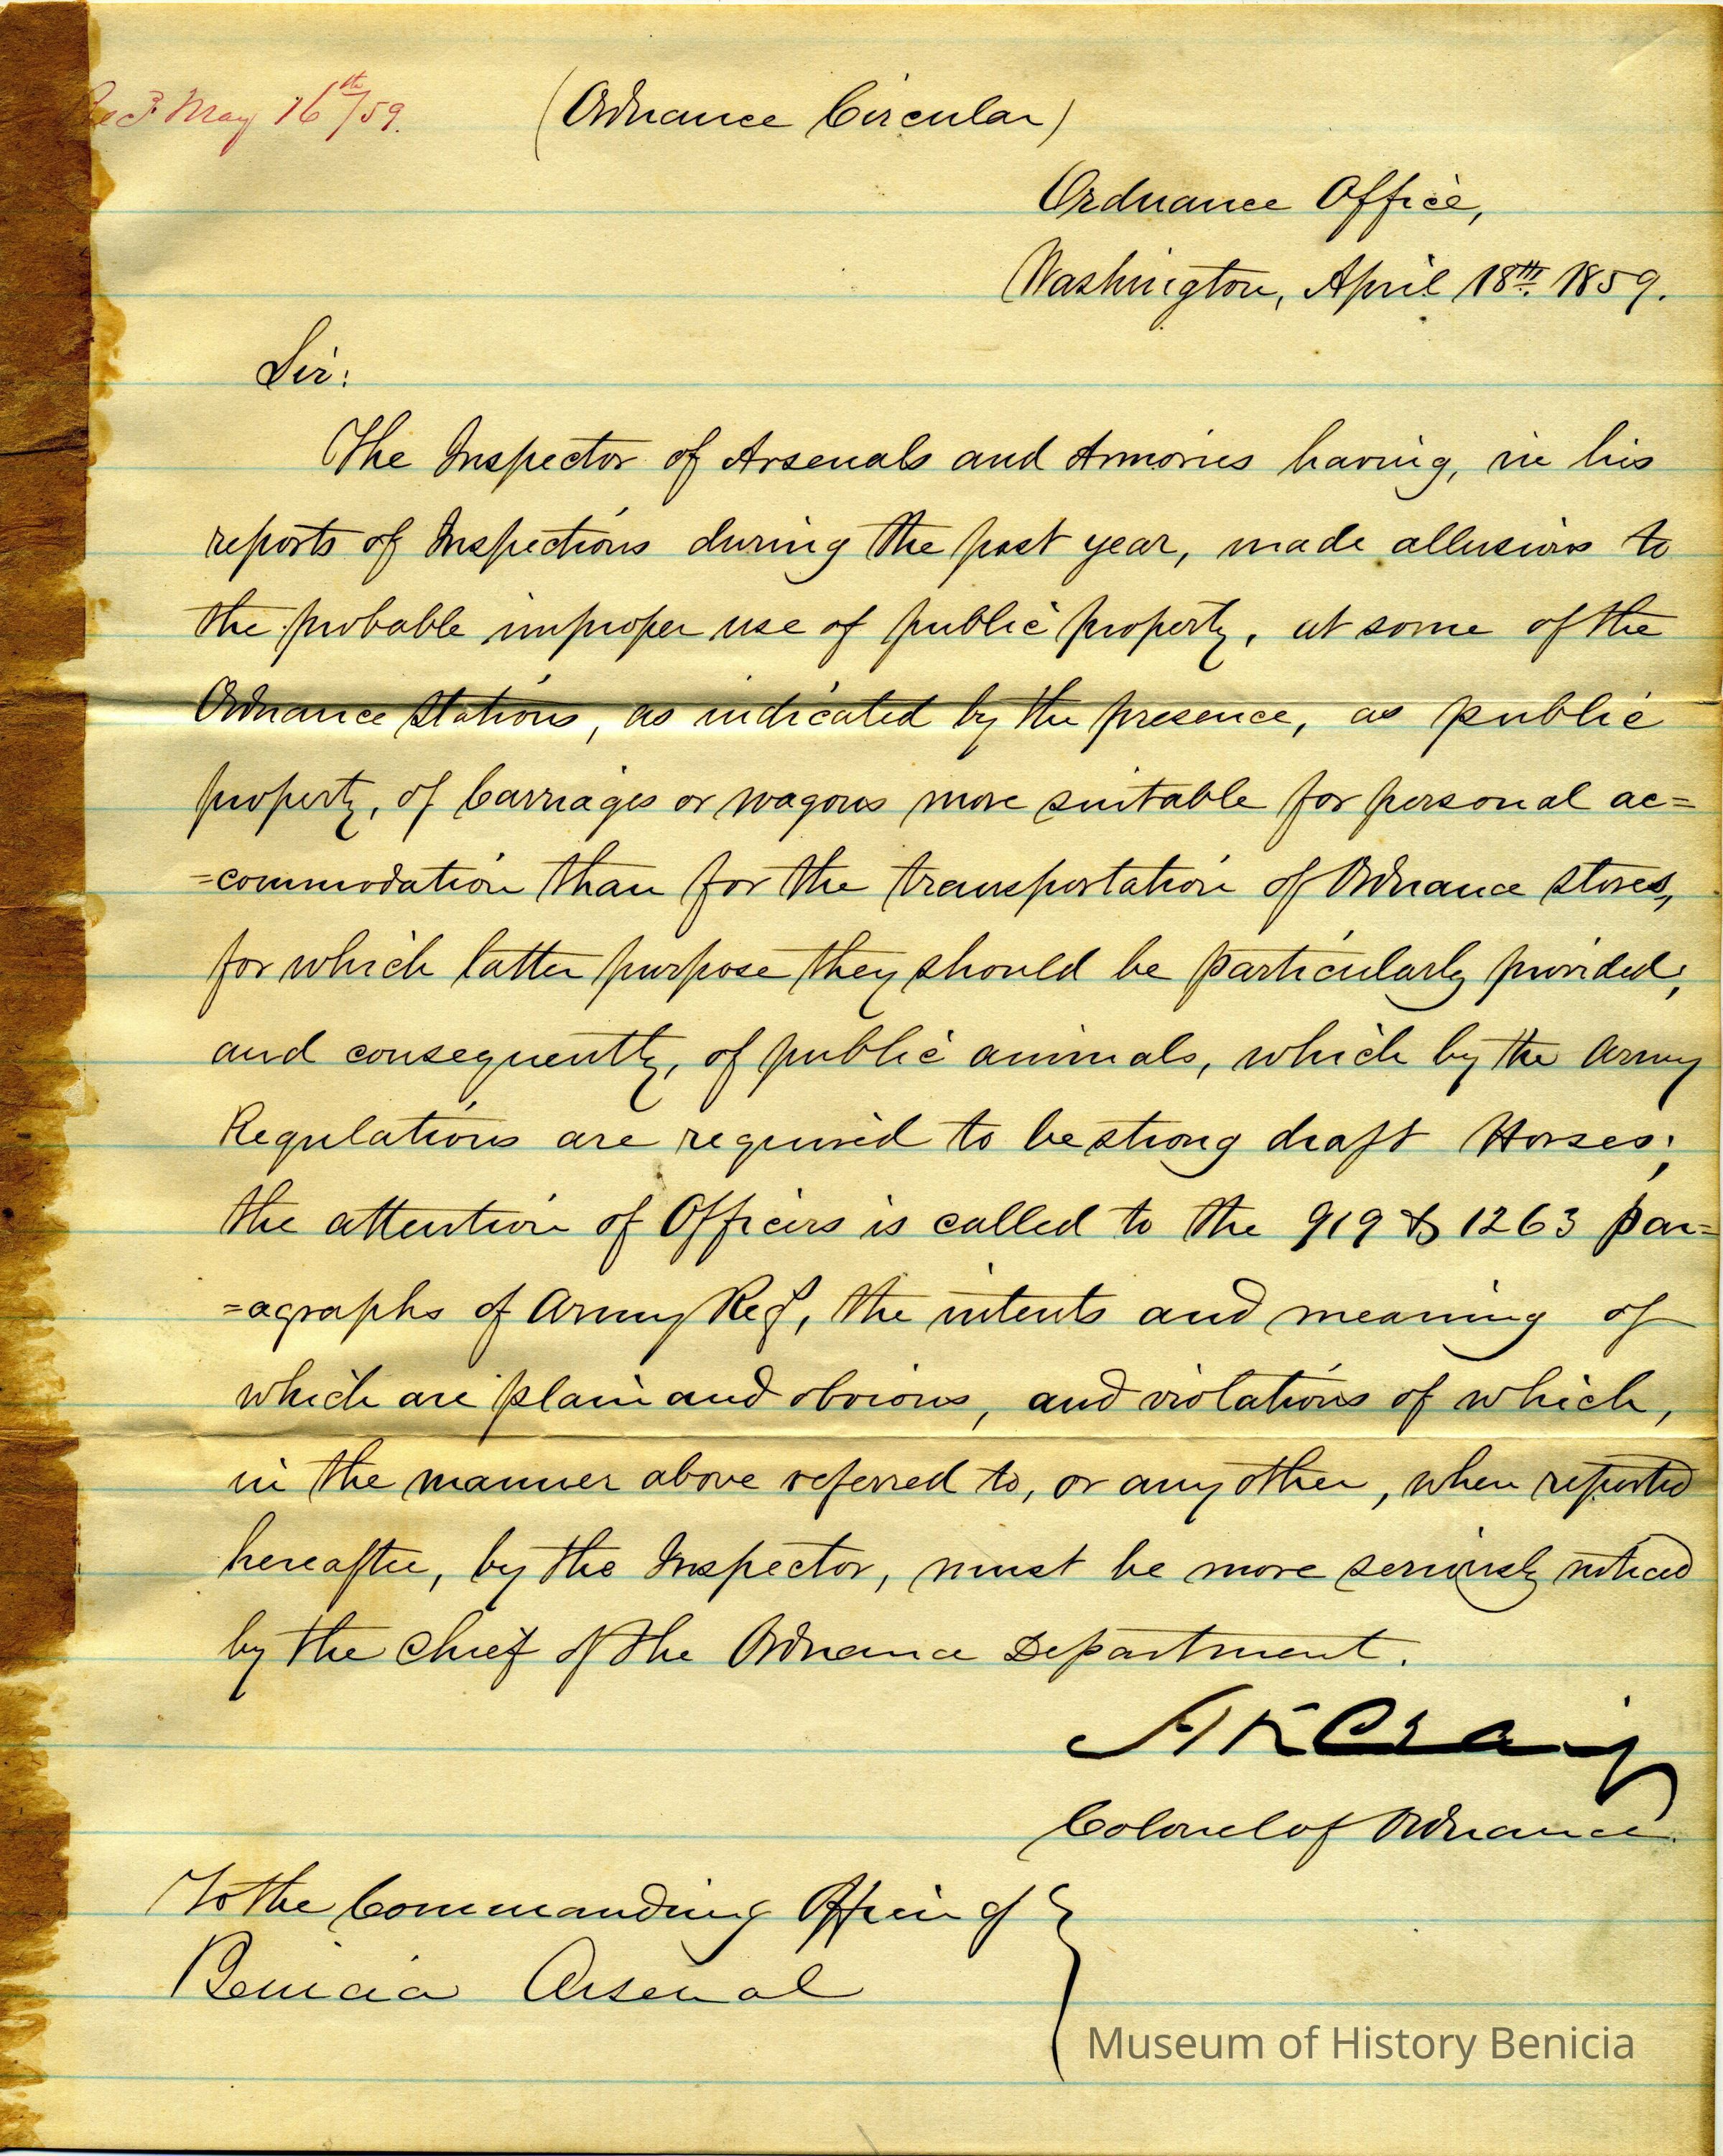 Rec'd May 16th/59.
(Ordnance Circular)
Ordnance Office,
Washington, April 18th 1859.
Sir:
The Inspector of Arsenals and Armories having, in his
reports of Inspections during the past year, made allusions to
the probable improper use of public property, at some of the
Ordnance stations, as indicated by the presence, as public
property, of Carriages or wagons more suitable for personal ac=
=commodation than for the transportation of Ordnance stores,
for which latter purpose they should be particularly provided;
and consequently, of public animals, which by the Army
Regulations are required to be strong draft Horses;
the attention of Officers is called to the 919 & 1263 par=
=agraphs of Army Reg, the intents and meaning of
which are plain and obvious, and violations of which,
in the manner above referred to, or any other, when reported
hereafter, by the Inspector, must be more seriously noticed
by the chief of the Ordnance Department.
H K Craig
Colonel of Ordnance.
To the Commanding Officer of
Benicia Arsenal
Museum of History Benicia